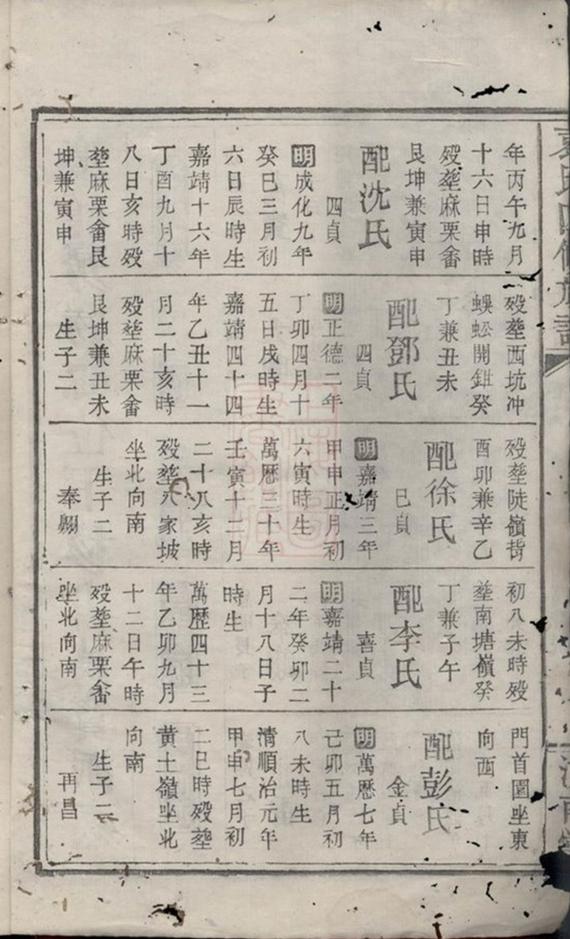 年丙午九月
十六日申時
殁塟麻栗畲
艮坤兼寅申
配沈氏
四貞
明成化九年
癸巳三月初
六日辰時生
嘉靖十六年
丁酉九月十
八日亥時殁
塟麻栗畲艮
坤兼寅申
殁塟西坑冲
蜈蚣開鉗癸
丁兼丑未
配鄧氏
四貞
明正德二年
丁卯四月十
五日戌時生
嘉靖四十四
年乙丑十一
月二十亥時
殁塟麻栗畲
艮坤兼丑未
生子二
殁塟陡嶺
酉卯兼辛乙
配徐氏
巳貞
明嘉靖三年
甲申正月初
六寅時生
萬歷三十年
壬寅十二月
二十八亥時
殁塟八家坡
坐北向南
生子二
奉顯
初八未時殁
塟南塘嶺癸
丁兼子午
配李氏
喜貞
明嘉靖二十
二年癸卯二
月十八日子
時生
萬歷四十三
年乙卯九月
十二日午時
殁塟麻栗畲
坐北向南
門首園坐東
向西
配彭氏
金貞
明萬歷七年
己卯五月初
八未時生
清順治元年
甲申七月初
二巳時殁塟
黄土嶺坐北
向南
生子二
再昌